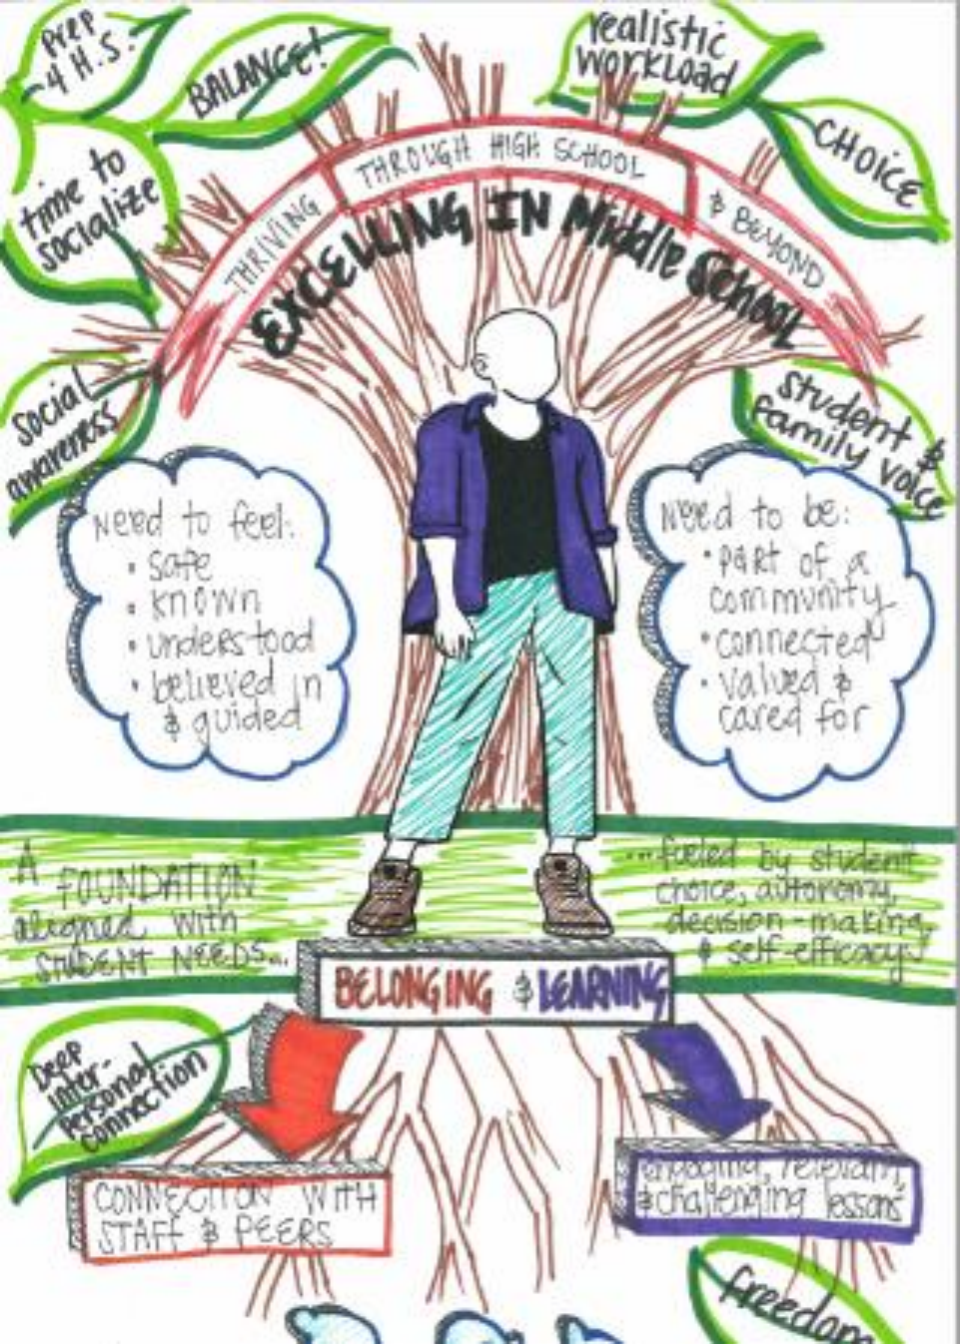 Prep
4 H.S.
BALANCE!
realistic
WORKLOAD
CHOICE
time to
socialize
THRIVING
THROUGH HIGH SCHOOL
& BEYOND
EXCELLING IN Middle School
social
awareness
student &
family voice
Need to feel:
• safe
• known
• understood
• believed in
& guided
Need to be:
• part of a
community
• connected
• valued &
cared for
A FOUNDATION
aligned with
STUDENT NEEDS...
...fueled by student
choice, autonomy,
decision-making,
& self-efficacy
BELONGING & LEARNING
Deep
inter-
personal
connection
CONNECTION WITH
STAFF & PEERS
engaging, relevant,
& challenging lessons
freedom